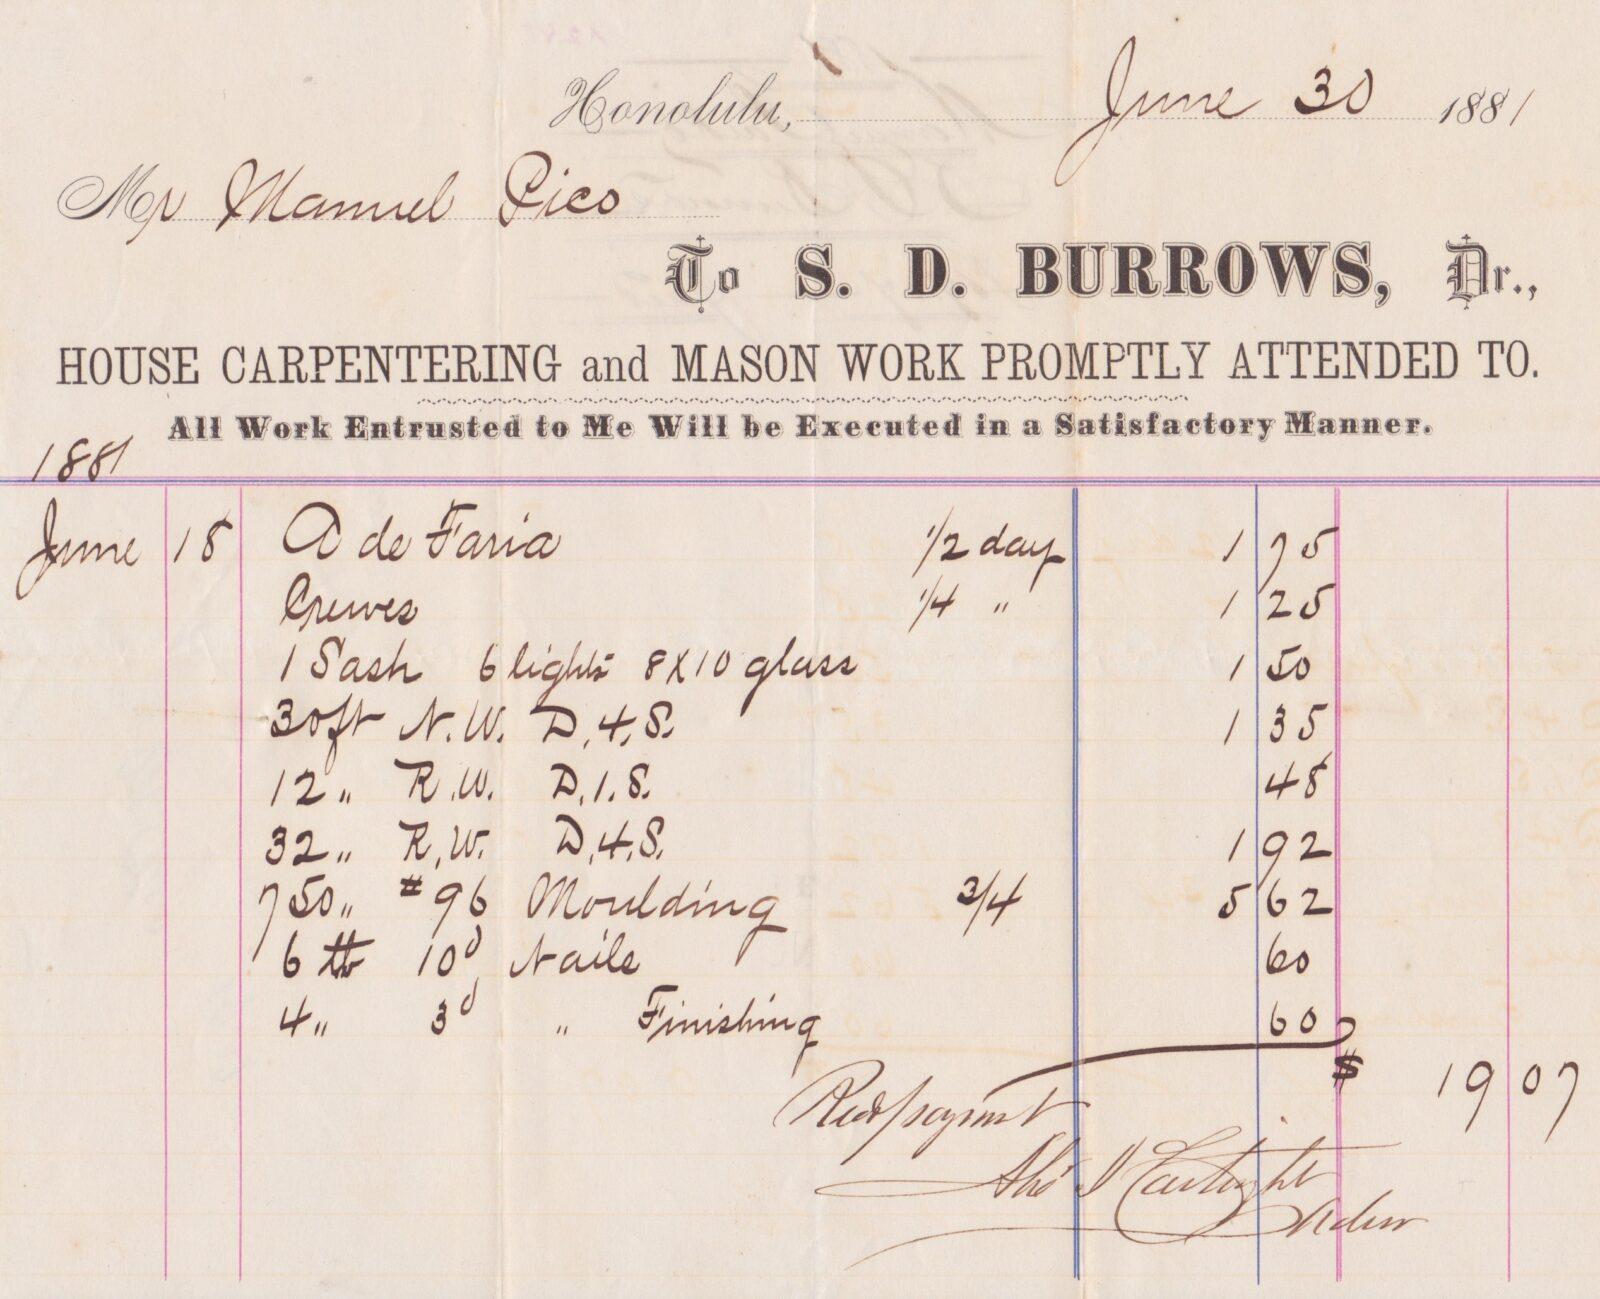 Honolulu, June 30 1881
Mr Manuel Pico
To S. D. BURROWS, Dr.,
HOUSE CARPENTERING and MASON WORK PROMPTLY ATTENDED TO.
All Work Entrusted to Me Will be Executed in a Satisfactory Manner.
1881
June 18 A de Faria 1/2 day 1 75
Crewes 1/4 " 1 25
1 Sash 6 lights 8 X 10 glass 1 50
30 ft N. W. D. 4. S. 1 35
12 " R. W. D. 1. S. 48
32 " R. W. D. 4. S. 1 92
750 " # 96 Moulding 3/4 5 62
6 lb 10d Nails 60
4 " 3d " Finishing 60
$ 19 07
Recd payment
Cartwright